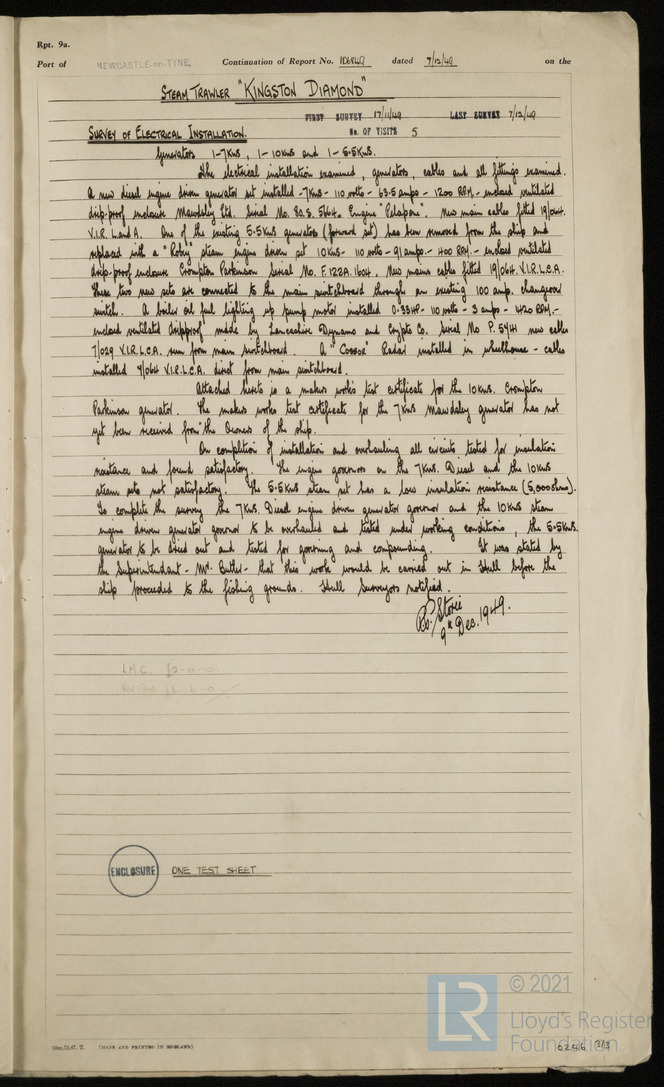 Rpt. 9a.
Port of NEWCASTLE-on-TYNE Continuation of Report No. 106849 dated 7/12/49 on the
STEAM TRAWLER "KINGSTON DIAMOND"
FIRST SURVEY 17/11/49 LAST SURVEY 7/12/49
SURVEY OF ELECTRICAL INSTALLATION. No. OF VISITS 5
Generators 1-7KWS, 1-10KWS and 1-5.5KWS.
The electrical installation examined, generators, cables and all fittings examined.
A new diesel engine driven generator set installed - 7KWS - 110 volts - 63.5 amps - 1200 RPM - enclosed ventilated
drip-proof enclosure Mawdsley Ltd. Serial No. 80.S. 5664. Engine "Petapone". New main cables fitted 19/064
V.I.R. L and A. One of the existing 5.5KWS generators (forward set) has been removed from the ship and
replaced with a "Robey" steam engine driven set 10KWS - 110 volts - 91 amps - 400 RPM - enclosed ventilated
drip-proof enclosure Crompton Parkinson Serial No. F.122A.1604. New mains cable fitted 19/064 V.I.R.L.C.A.
These two new sets are connected to the main switchboard through an existing 100 amp. changeover
switch. A boiler oil fuel lighting up pump motor installed 0.33HP - 110 volts - 3 amps - 1420 RPM. -
enclosed ventilated dripproof made by Lancashire Dynamo and Crypto Co. Serial No P. 5441 new cables
7/029 V.I.R.L.C.A. run from main switchboard. A "Cossor" Radar installed in wheelhouse - cables
installed 7/064 V.I.R.L.C.A. direct from main switchboard.
Attached hereto is a makers works test certificate for the 10KWS. Crompton
Parkinson generator. The makers works test certificate for the 7KWS Mawdsley generator has not
yet been received from the Owners of the ship.
On completion of installation and overhauling all circuits tested for insulation
resistance and found satisfactory. The engine governors on the 7KWS. Diesel and the 10KWS
steam sets not satisfactory. The 5.5KWS steam set has a low insulation resistance (5,000 ohms).
To complete the survey the 7KWS. Diesel engine driven generator governor and the 10KWS steam
engine driven generator governor to be overhauled and tested under working conditions, the 5.5KWS.
generator to be dried out and tested for governing and compounding. It was stated by
the Superintendant - Mr. Butler - that this work would be carried out in Hull before the
ship proceeded to the fishing grounds. Hull Surveyors notified.
Storie
9th Dec. 1949.
LMC. £2-0-0
ENCLOSURE ONE TEST SHEET
© 2021
LR
Lloyd's Register
Foundation
(MADE AND PRINTED IN ENGLAND)
0246 3/3